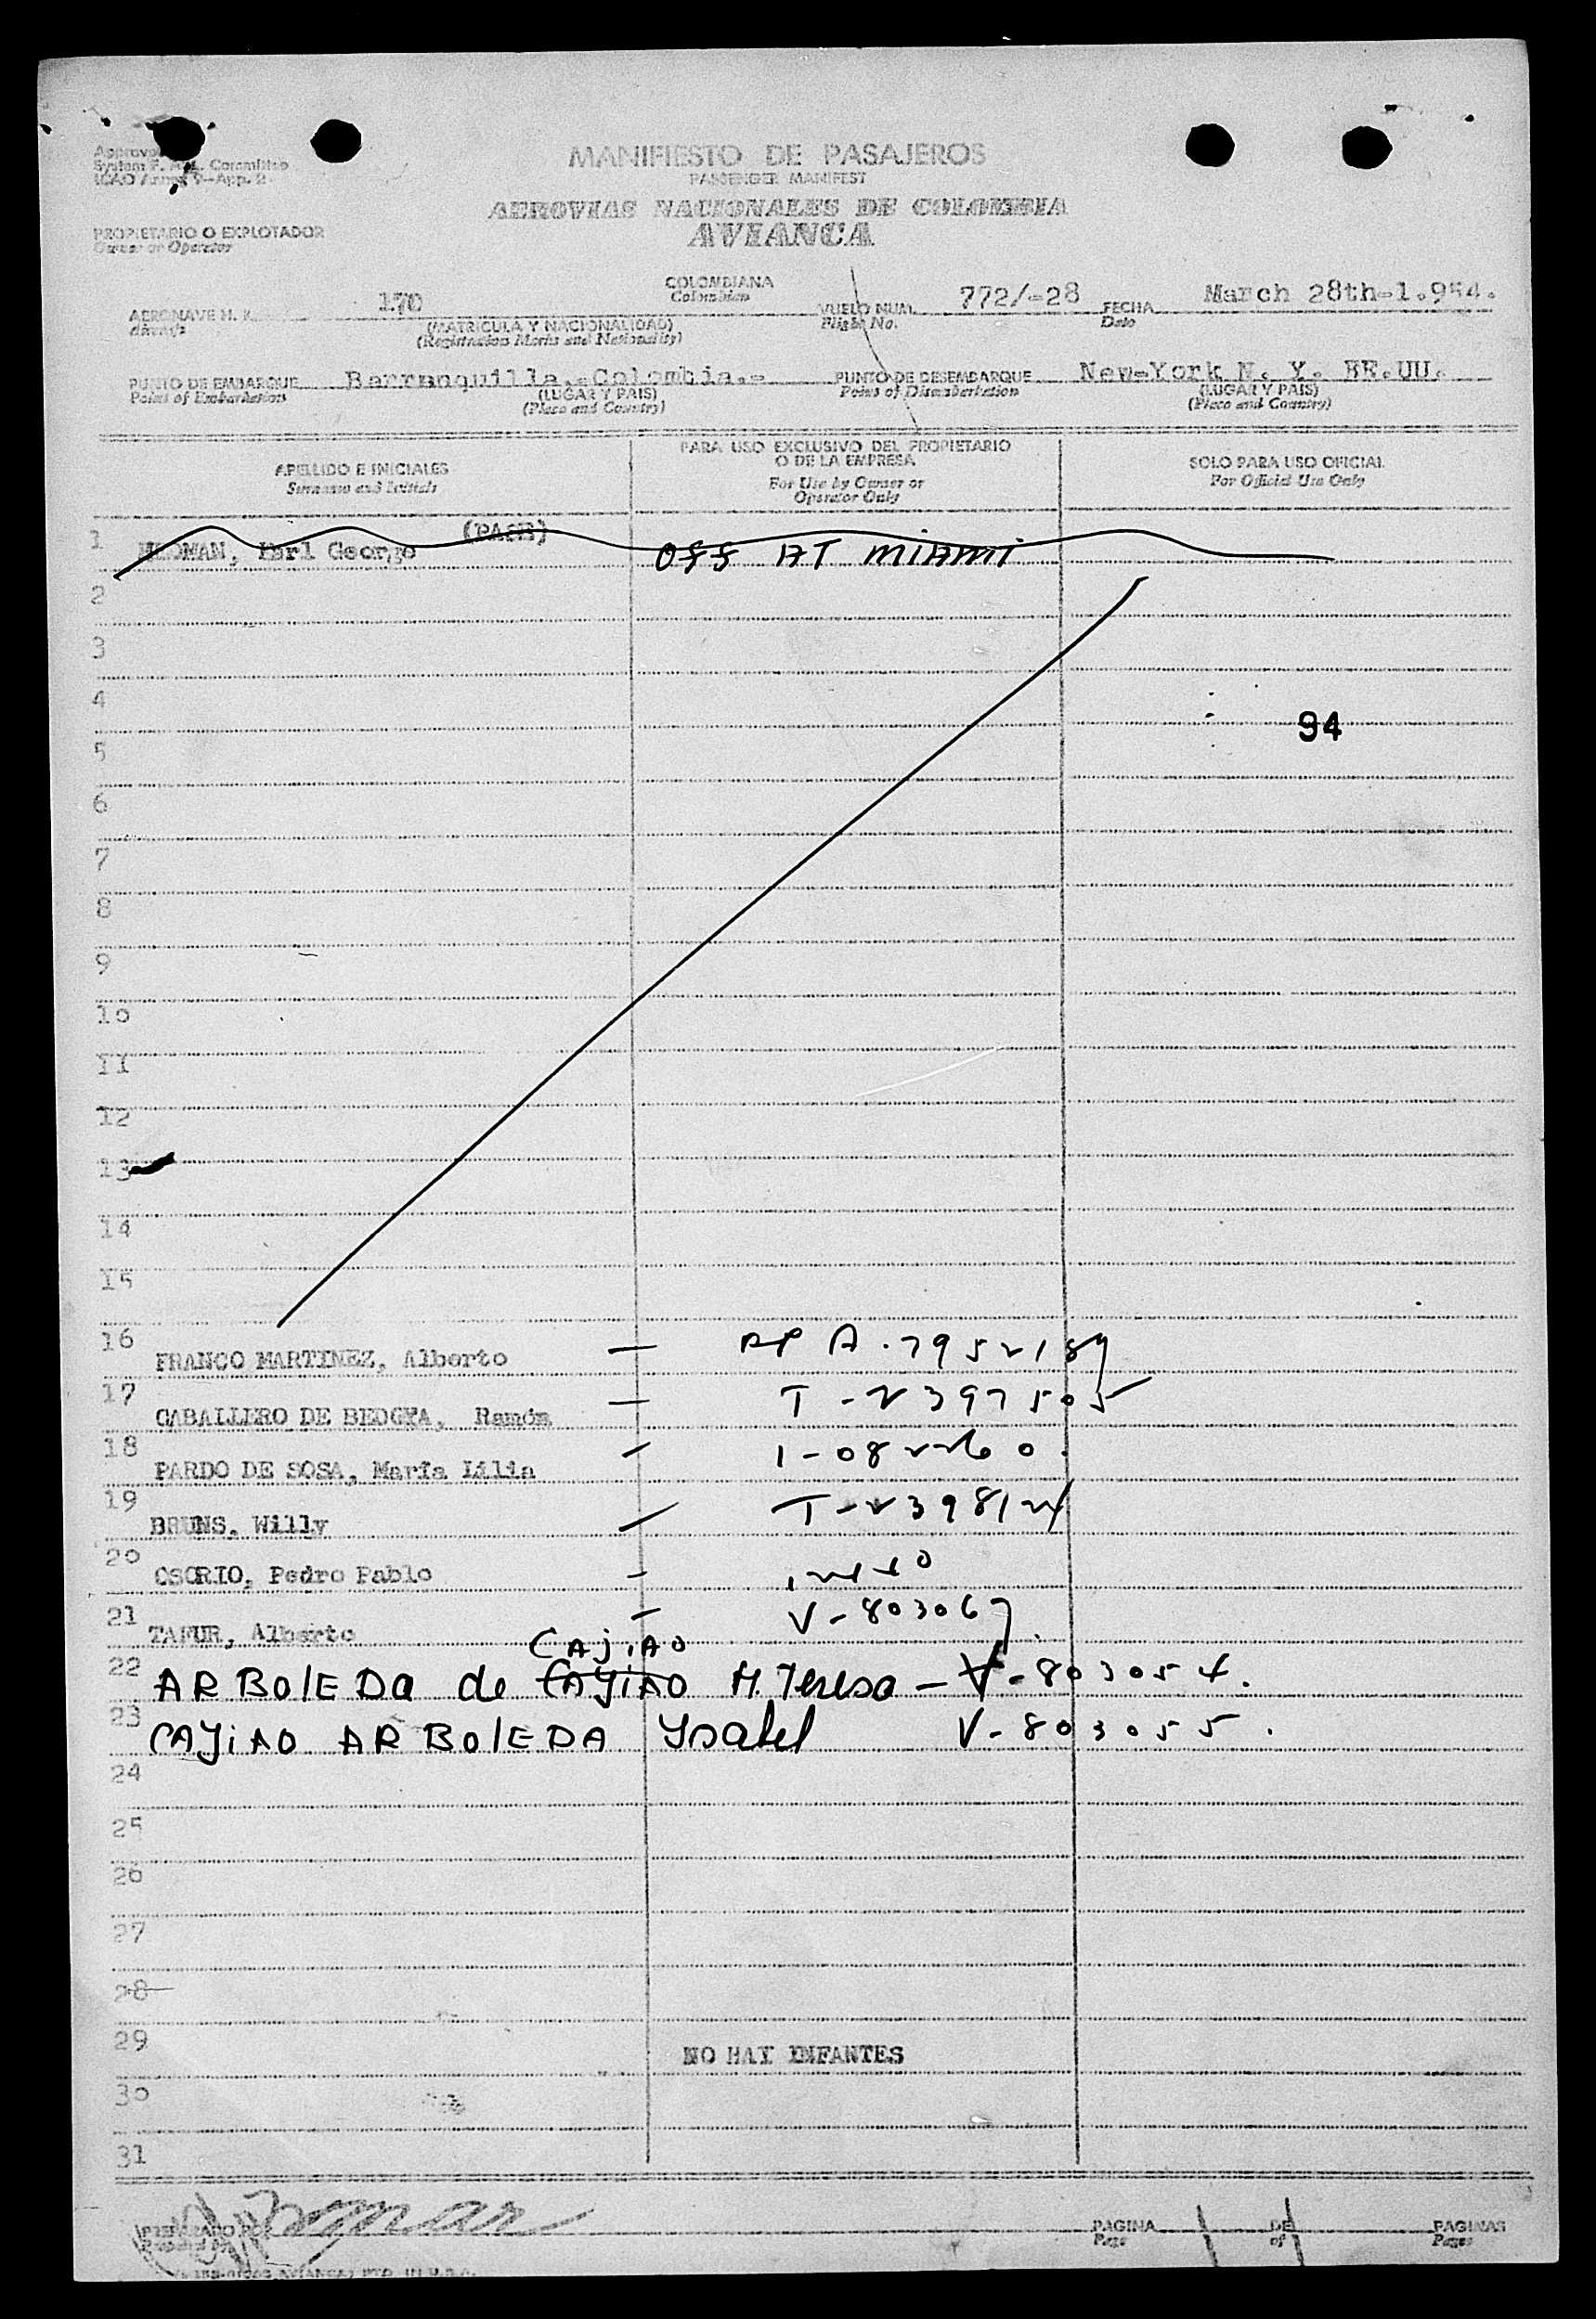 System F. A. L. Committee
ICAO Annex 9-App. 2
MANIFIESTO DE PASAJEROS
PASSENGER MANIFEST
AEROVIAS NACIONALES DE COLOMBIA
AVIANCA
PROPIETARIO O EXPLOTADOR
Owner or Operator
COLOMBIANA
Colombian
AERONAVE H. K. 170
Aircraft
(MATRICULA Y NACIONALIDAD)
(Registration Marks and Nationality)
VUELO NUM. 772/-28
Flight No.
FECHA March 28th-1.954.
Date
PUNTO DE EMBARQUE Barranquilla.-Colombia.-
Point of Embarkation
(LUGAR Y PAIS)
(Place and Country)
PUNTO DE DESEMBARQUE New-York N. Y. EE.UU.
Point of Disembarkation
(LUGAR Y PAIS)
(Place and Country)
APELLIDO E INICIALES
Surname and Initials
PARA USO EXCLUSIVO DEL PROPIETARIO
O DE LA EMPRESA
For Use by Owner or
Operator Only
SOLO PARA USO OFICIAL
For Official Use Only
1 Earl George OFF AT MIAMI
2
3
4
94
5
6
7
8
9
10
11
12
13
14
15
16 FRANCO MARTINEZ, Alberto — A.7952189
17 CABALLERO DE Ramón — T-2397505
18 PARDO DE SOSA, María Lilia - 1-082260.
19 BRUNS, Willy - T-239812
20 OSORIO, Pedro Pablo -
21 TAFUR, Alberto - V-803067.
CAJIAO
22 ARBOLEDA de CAJIAO M. Teresa - V-803054.
23 CAJIAO ARBOLEDA Ysabel V-803055.
24
25
26
27
28
29 NO HAY INFANTES
30
31
PREPARADO POR
Prepared by
PAGINA 1 DE 1 PAGINAS
Page of Pages